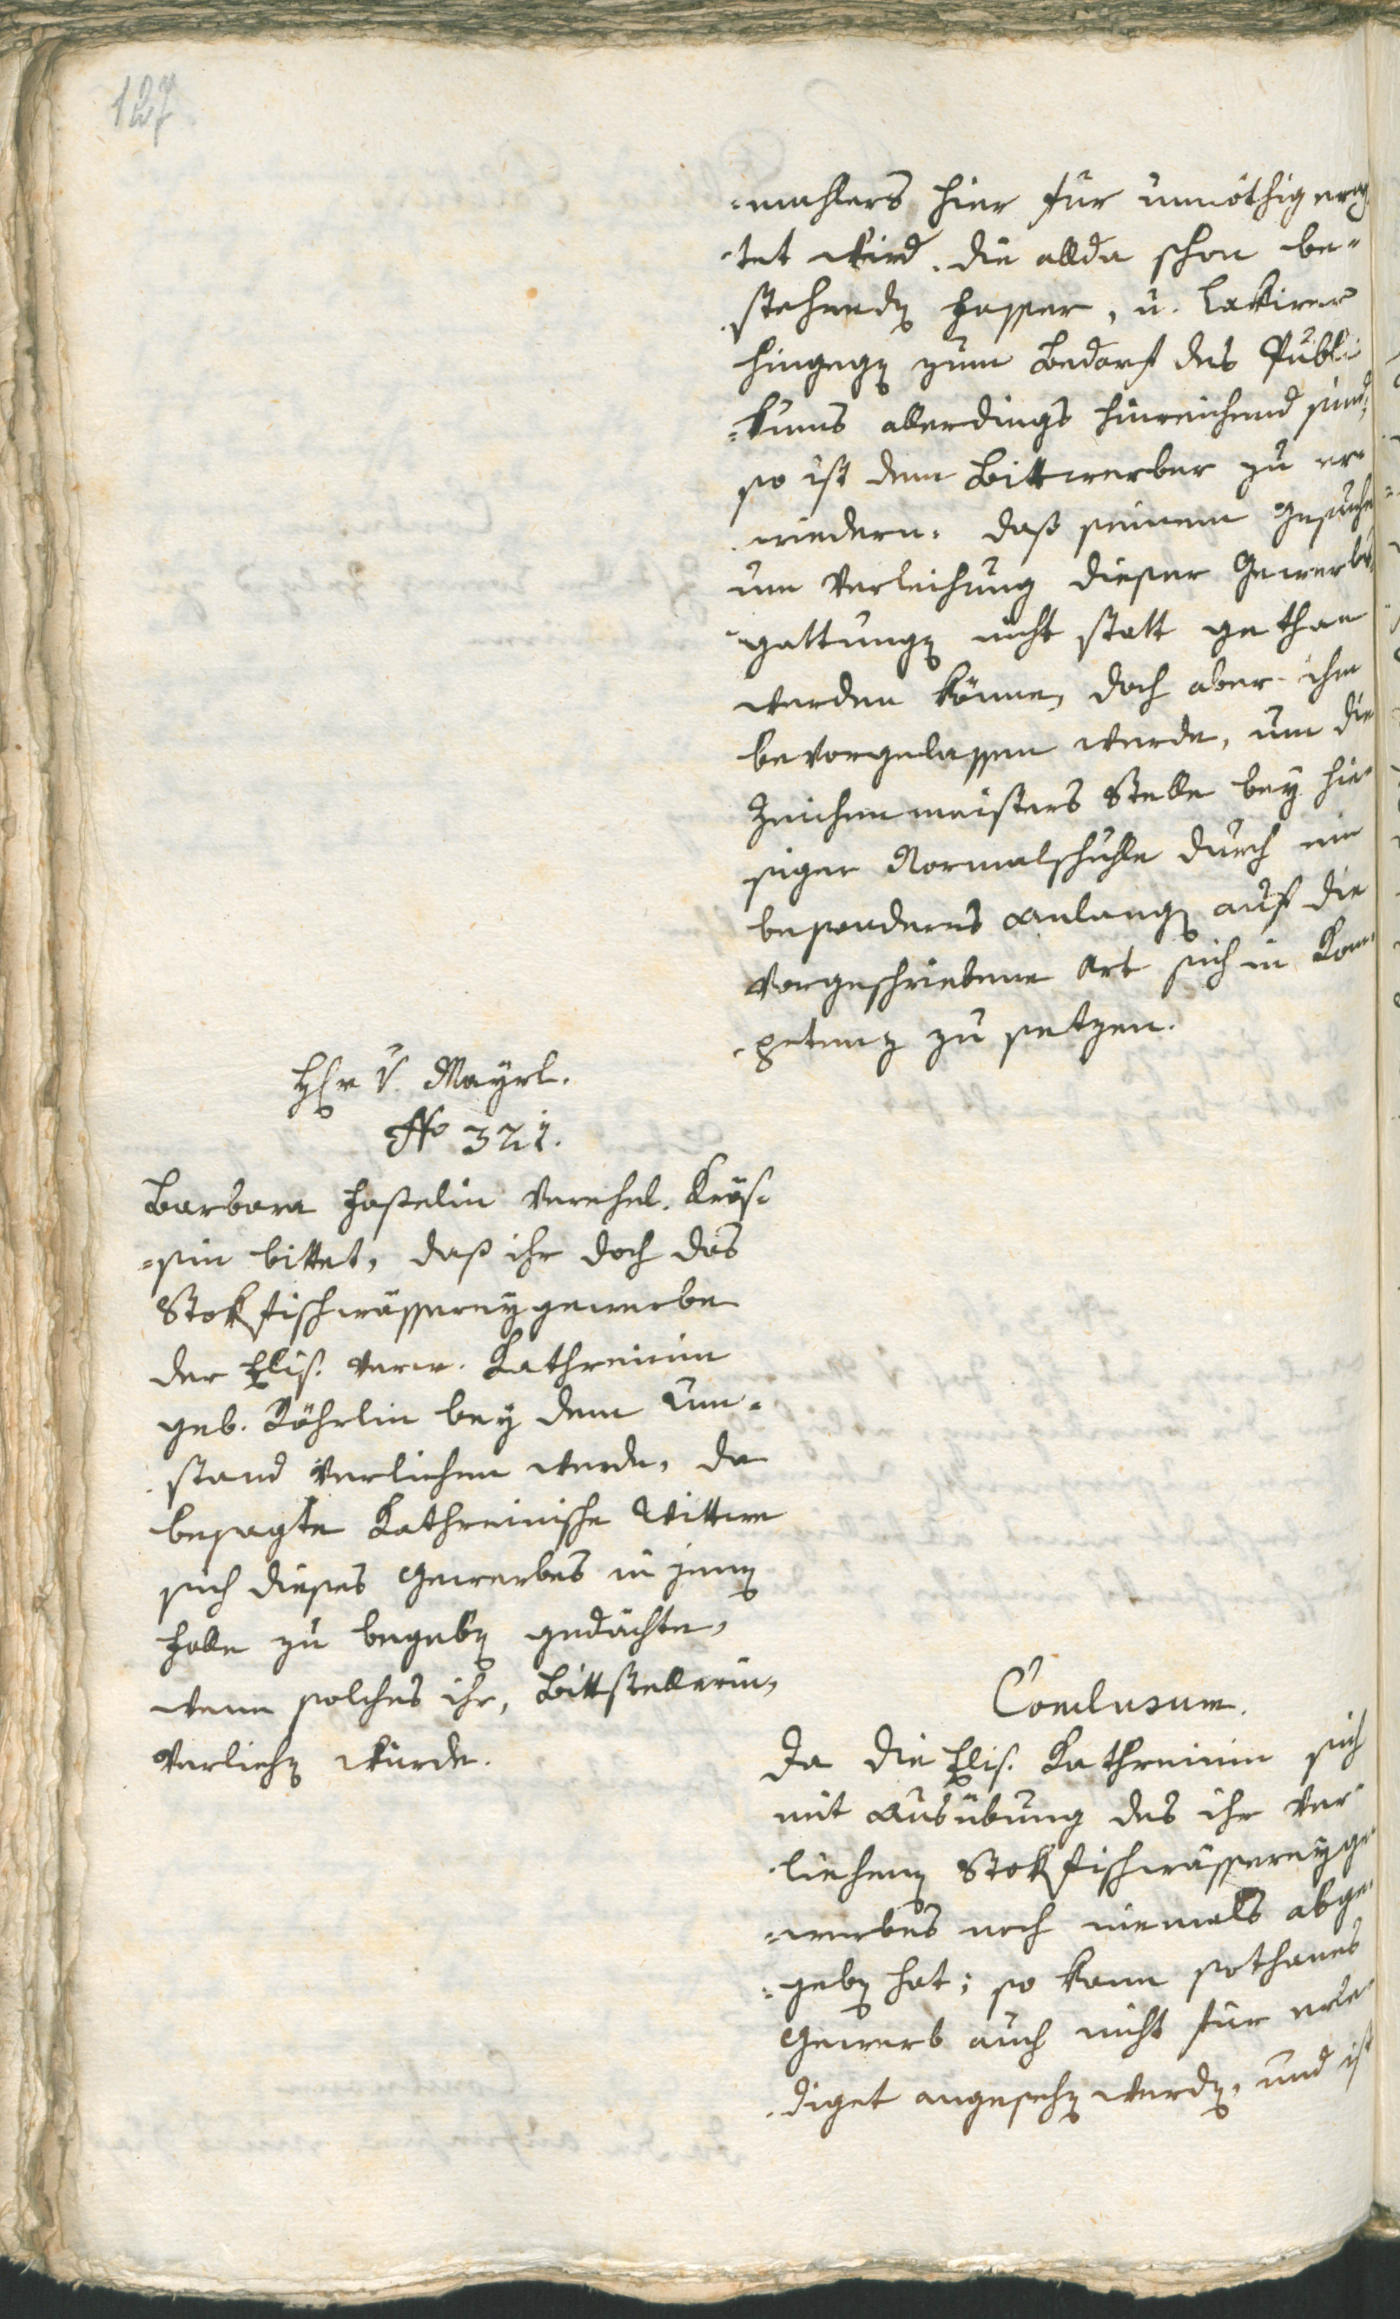 127
-mahlers hier für unnöthig erach
-tet wird. die allda schon be-
stehendn Fasser, u. Lakirer
hingegn zum Bedarf des Publi
-kums allerdings hinreichend sind,
so ist dem Bittwerber zu er-
wiedern. daß seinem Gesuche
um Verleihung dieser Gewerbs-
gattungn nicht statt gethan
werden könne, doch aber ihm
bevorgelassen werde, um die
Zeichenmeisters Stelle bey hie-
siger Normalschuhle durch ein
besonderes Anlangn auf die
vorgeschriebene Art sich in Kom-
-petenz zu setzen.
Hr v. Mayrl.
No 321.
Barbara Hastelin verehel. Krös-
-sin bittet, daß ihr doch das
Stokfischwässereygewerbe
der Elis. verw. Kathreinin
geb. Röhrlin bey dem Um-
stand verliehen werde, da
besagte Kathreinische Wittwe
sich dieses Gewerbes in jenn
Falle zu begebn gedächte,
wenn solches ihr, Bittstellerin,
verliehn würde.
Conclusum.
Da die Elis. Kathreinin sich
mit Ausübung des ihr ver-
liehenn Stokfischwässereyge
-werbes noch niemals abge-
-gebn hat; so kann sothanes
Gewerb auch nicht für erle-
diget angesehn werdn, und ist